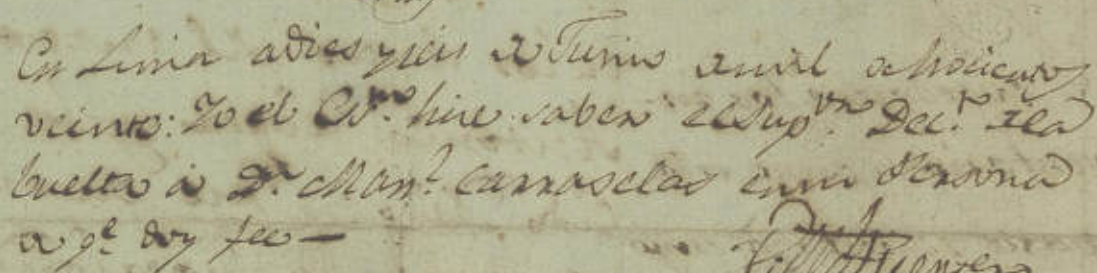 En Lima a dies y seis de Junio de mil ochocientos
veinte: Yo el Esno hise saber el Supor Dect de la
buelta a Dn Manl Carrasclas en su Persona
de qe doy fee —